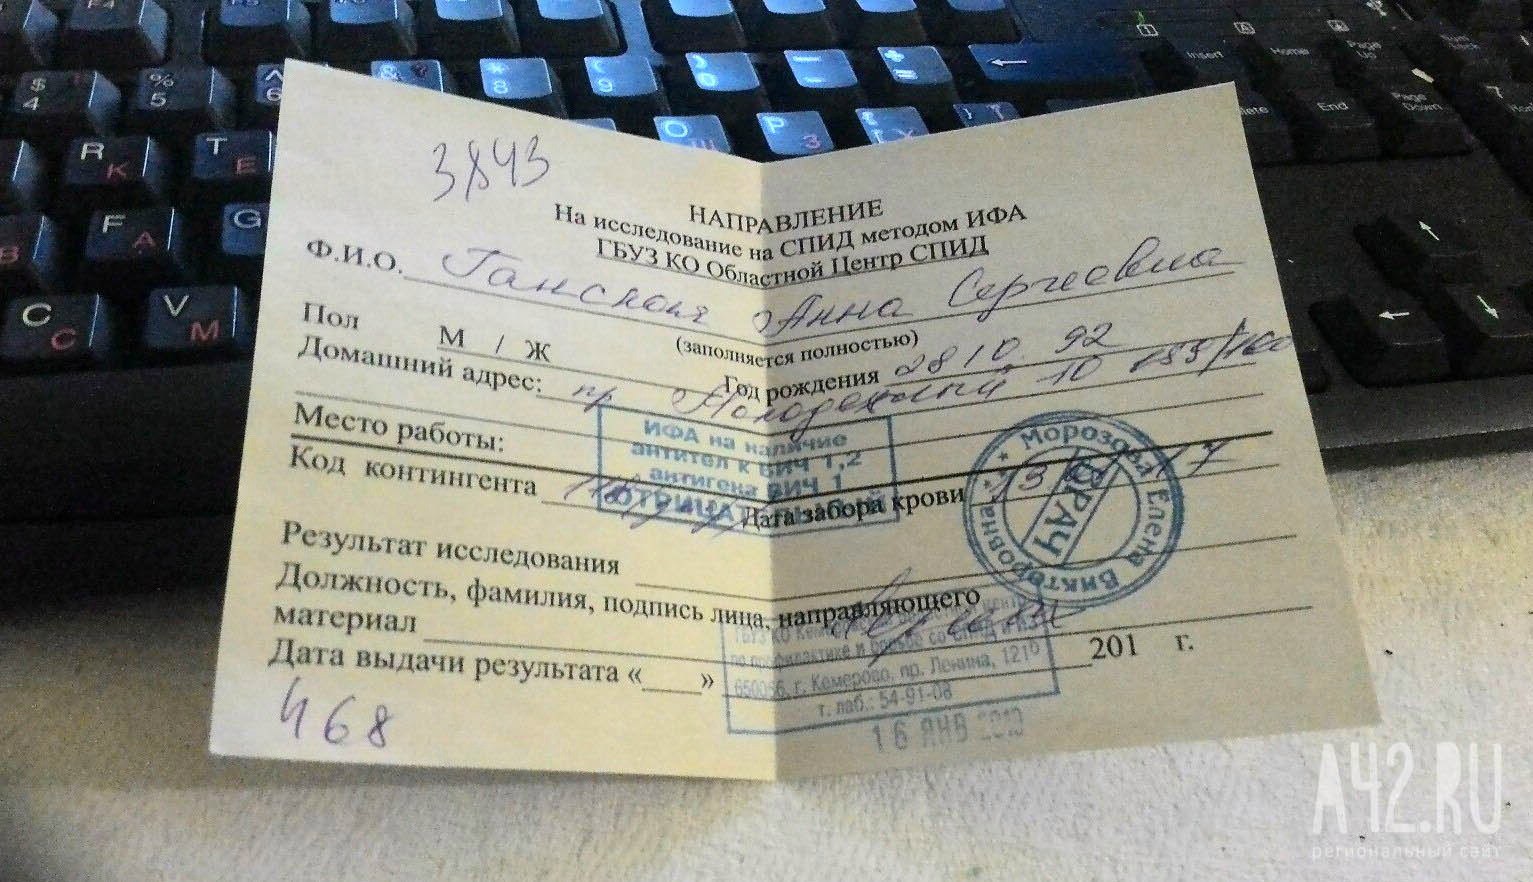 3843
НАПРАВЛЕНИЕ
На исследование на СПИД методом ИФА
ГБУЗ КО Областной Центр СПИД
Ф.И.О. Анна Сергеевна
(заполняется полностью)
Пол М / Ж Год рождения 28 10. 92
Домашний адрес: пр Молодежный 10
Место работы:
ИФА на наличие
антител к ВИЧ 1,2
антигена ВИЧ 1
Код контингента Дата забора крови
Морозова Елена Викторовна
ВРАЧ
Результат исследования
Должность, фамилия, подпись лица, направляющего
материал
Дата выдачи результата «____» 201 г.
ГБУЗ КО
по профилактике и борьбе со СПИД и ИЗ
650056, г. Кемерово, пр. Ленина, 121
т. лаб.: 54-91-08
16 ЯНВ
468
$ 4
% 5
^ 6
& 
* 8
( 9
) 0
R К
T Е
O Щ
P З
F А
G
C С
V М
Insert
Home
Page Up
End
Page Down
A42.RU
региональный сайт